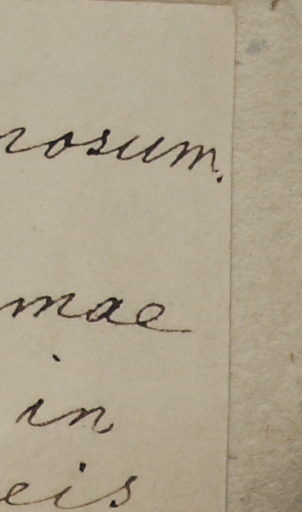 nosum.
mae
in
eis